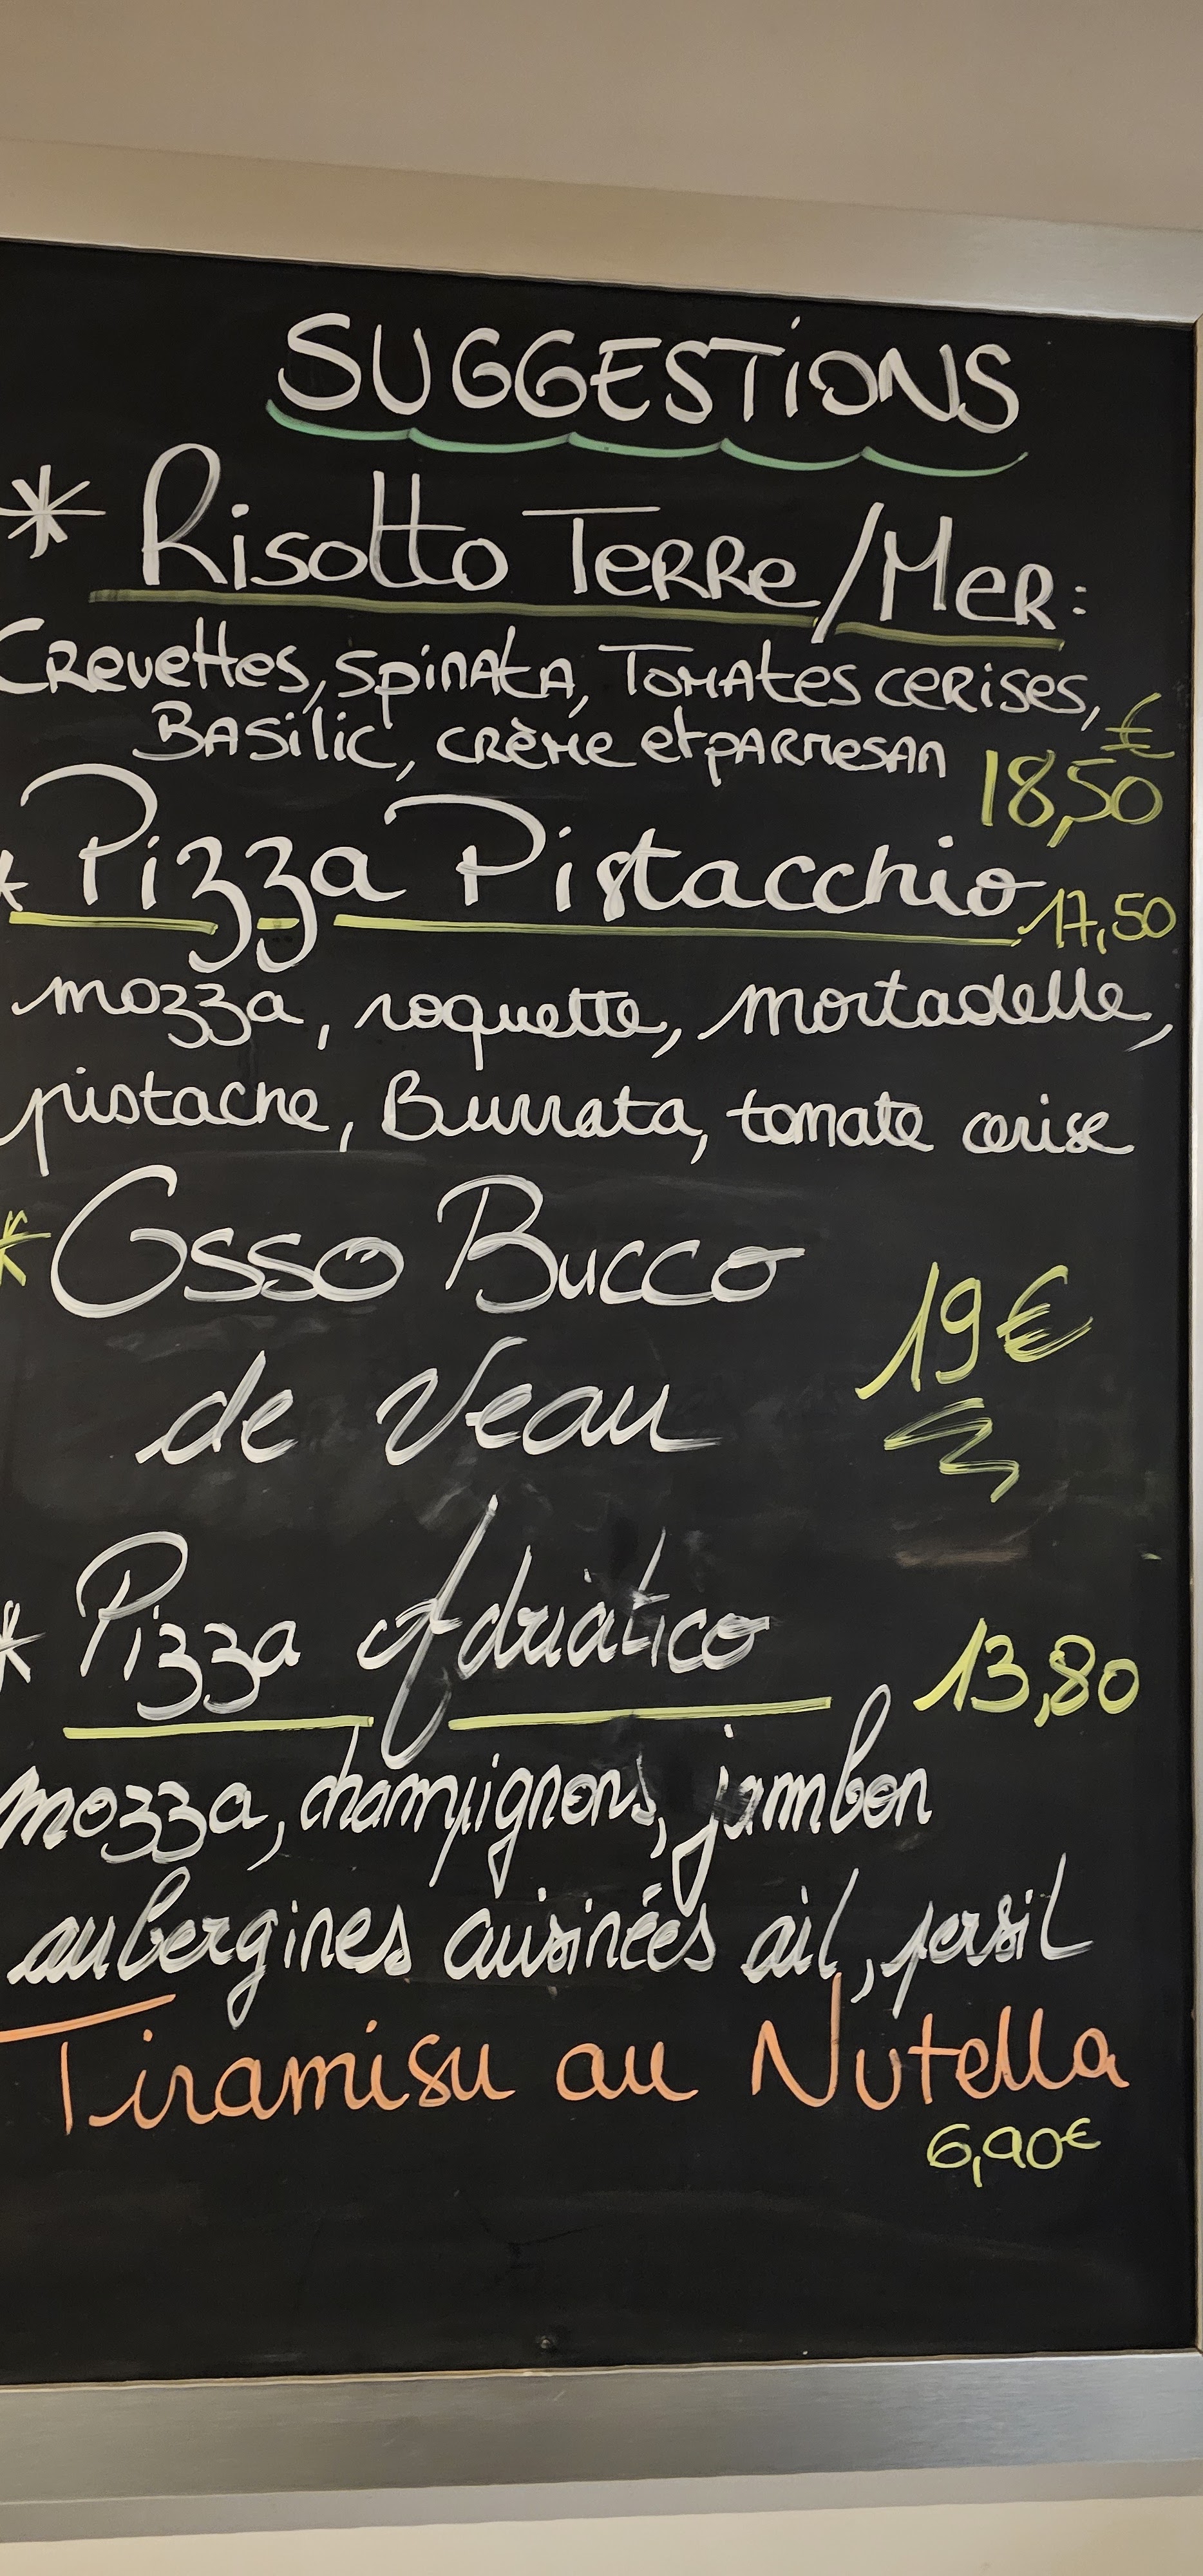 SUGGESTIONS
* Risotto Terre/Mer:
Crevettes, spinata, Tomates cerises,
Basilic, crème et parmesan 18,50 €
* Pizza Pistacchio 17,50
mozza, roquette, mortadelle,
pistache, Burrata, tomate cerise
* Osso Bucco
de Veau 19€
* Pizza Adriatico 13,80
mozza, champignons, jambon
aubergines cuisinées ail, persil
Tiramisu au Nutella
6,90€